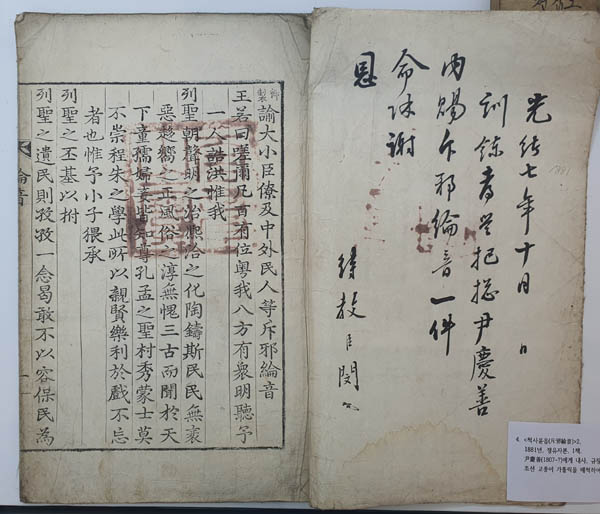 光緒七年十月 日
1881
訓鍊 把摠尹慶善
內賜斥邪綸音一件
命除謝
恩
待教臣閔
御製諭大小臣僚及中外民人等斥邪綸音
王若曰嗟爾凡百有位粵我八方有衆明聽予
一人誥洪惟我
列聖朝聲明之治熙洽之化陶鑄斯民民無衺
惡趍嚮之正風俗之淳無愧三古而聞於天
下童孺婦荛皆知尊孔孟之聖村秀蒙士莫
不崇程朱之學此所以親賢樂利於戲不忘
者也惟予小子猥承
列聖之丕基以拊
列聖之遺民則孜孜一念曷敢不以容保民爲
綸音 一
4. <척사윤음(斥邪綸音)>2,
1881년, 정유자본, 1책,
尹慶善(1807-?)에게 내사, 규장
조선 고종이 가톨릭을 배척하여